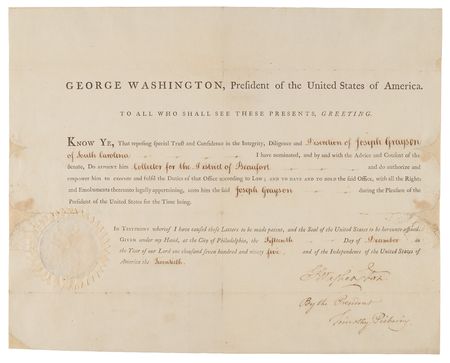 GEORGE WASHINGTON, Preſident of the United States of America.
TO ALL WHO SHALL SEE THESE PRESENTS, GREETING.
KNOW YE, That repoſing ſpecial Truſt and Confidence in the Integrity, Diligence and Discretion of Joseph Grayson
of South Carolina I have nominated, and by and with the Advice and Conſent of the
Senate, DO APPOINT him Collector for the District of Beaufort and do authorize and
empower him to execute and fulfil the Duties of that Office according to Law; AND TO HAVE AND TO HOLD the ſaid Office, with all the Rights
and Emoluments thereunto legally appertaining, unto him the ſaid Joseph Grayson during the Pleaſure of the
Preſident of the United States for the Time being.
IN TESTIMONY whereof I have cauſed theſe Letters to be made patent, and the Seal of the United States to be hereunto affixed.
GIVEN under my Hand, at the City of Philadelphia, the Fifteenth Day of December in
the Year of our Lord one thouſand ſeven hundred and ninety five, and of the Independence of the United States of
America the Twentieth.
G Washington
By the President
Timothy Pickering